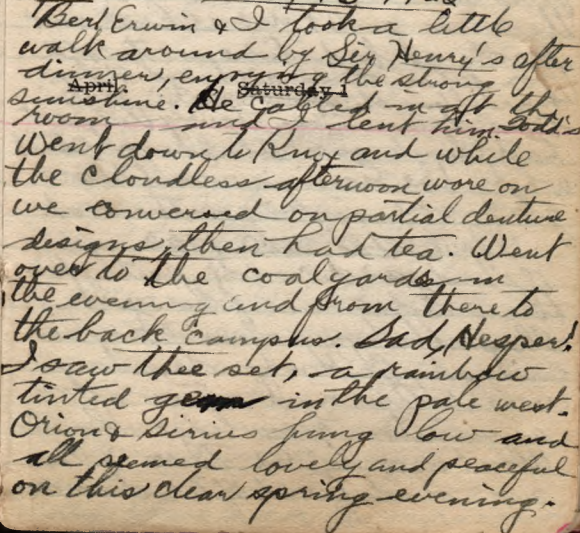 Bert Erwin & I took a little
walk around by Sir Henry's after
dinner, enjoying the strong
April. Saturday 1
sunshine. He called in at the
room and I lent him Todd's
Went down to Knox and while
the cloudless afternoon wore on
we conversed on partial denture
designs, then had tea. Went
over to the coalyards in
the evening and from there to
the back campus. Sad, Hesper!
I saw thee set, a rainbow
tinted gem in the pale west.
Orion & Sirius hung low and
all seemed lovely and peaceful
on this clear spring evening.